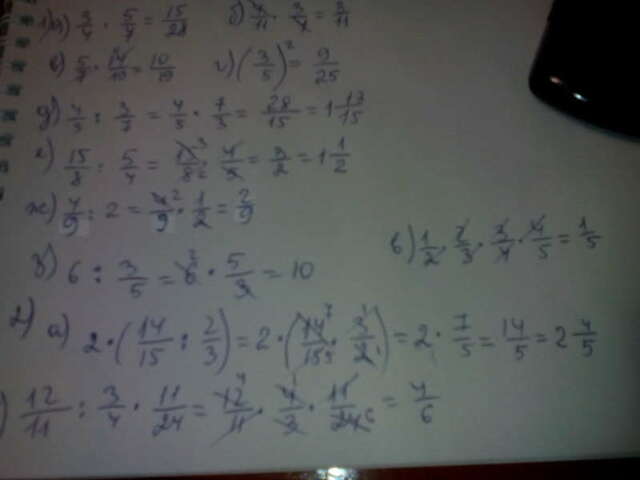 1) а) 3/4 · 5/7 = 15/28 б) 4/11 · 3/4 = 3/11
в) 5/7 · 14/19 = 10/19 г) (3/5)² = 9/25
д) 4/5 : 3/7 = 4/5 · 7/3 = 28/15 = 1 13/15
е) 15/8 : 5/4 = 15/8 · 4/5 = 3/2 = 1 1/2
ж) 4/9 : 2 = 4/9 · 1/2 = 2/9
з) 6 : 3/5 = 6 · 5/3 = 10 в) 1/2 · 2/3 · 3/4 · 4/5 = 1/5
2) а) 2 · (14/15 : 2/3) = 2 · (14/15 · 3/2) = 2 · 7/5 = 14/5 = 2 4/5
) 12/11 : 3/4 · 11/24 = 12/11 · 4/3 · 11/24 = 4/6